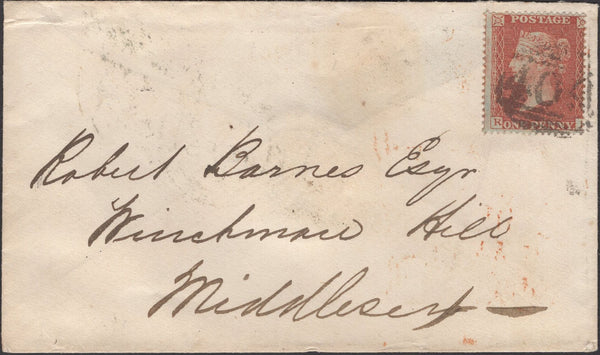 POSTAGE
ONE PENNY
Robert Barnes Esqr
Winchmore Hill
Middlesex